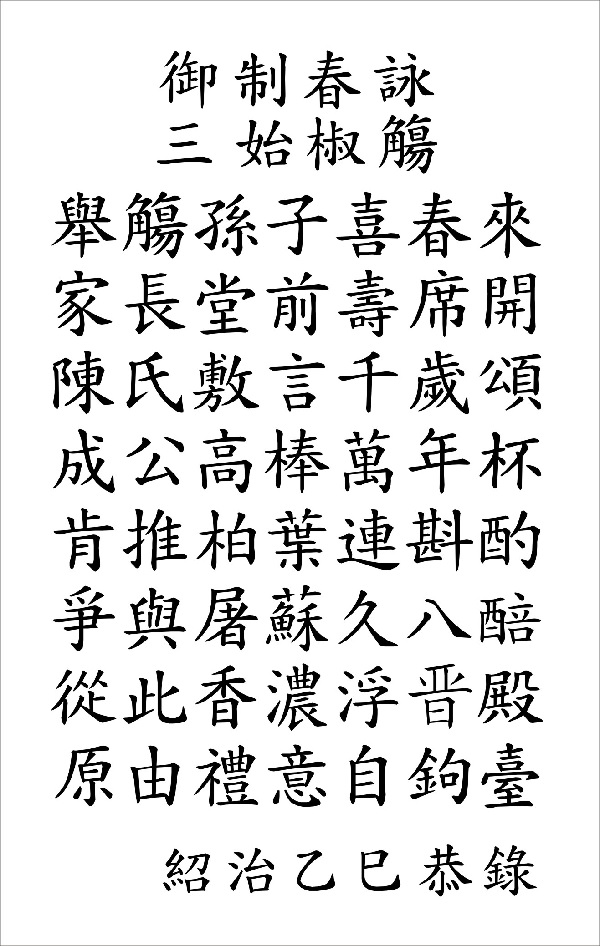 御制春詠
三始椒觴
舉觴孫子喜春來
家長堂前壽席開
陳氏敷言千歲頌
成公高棒萬年杯
肯推柏葉連斟酌
爭與屠蘇久八醅
從此香濃浮晋殿
原由禮意自鉤臺
紹治乙巳恭錄